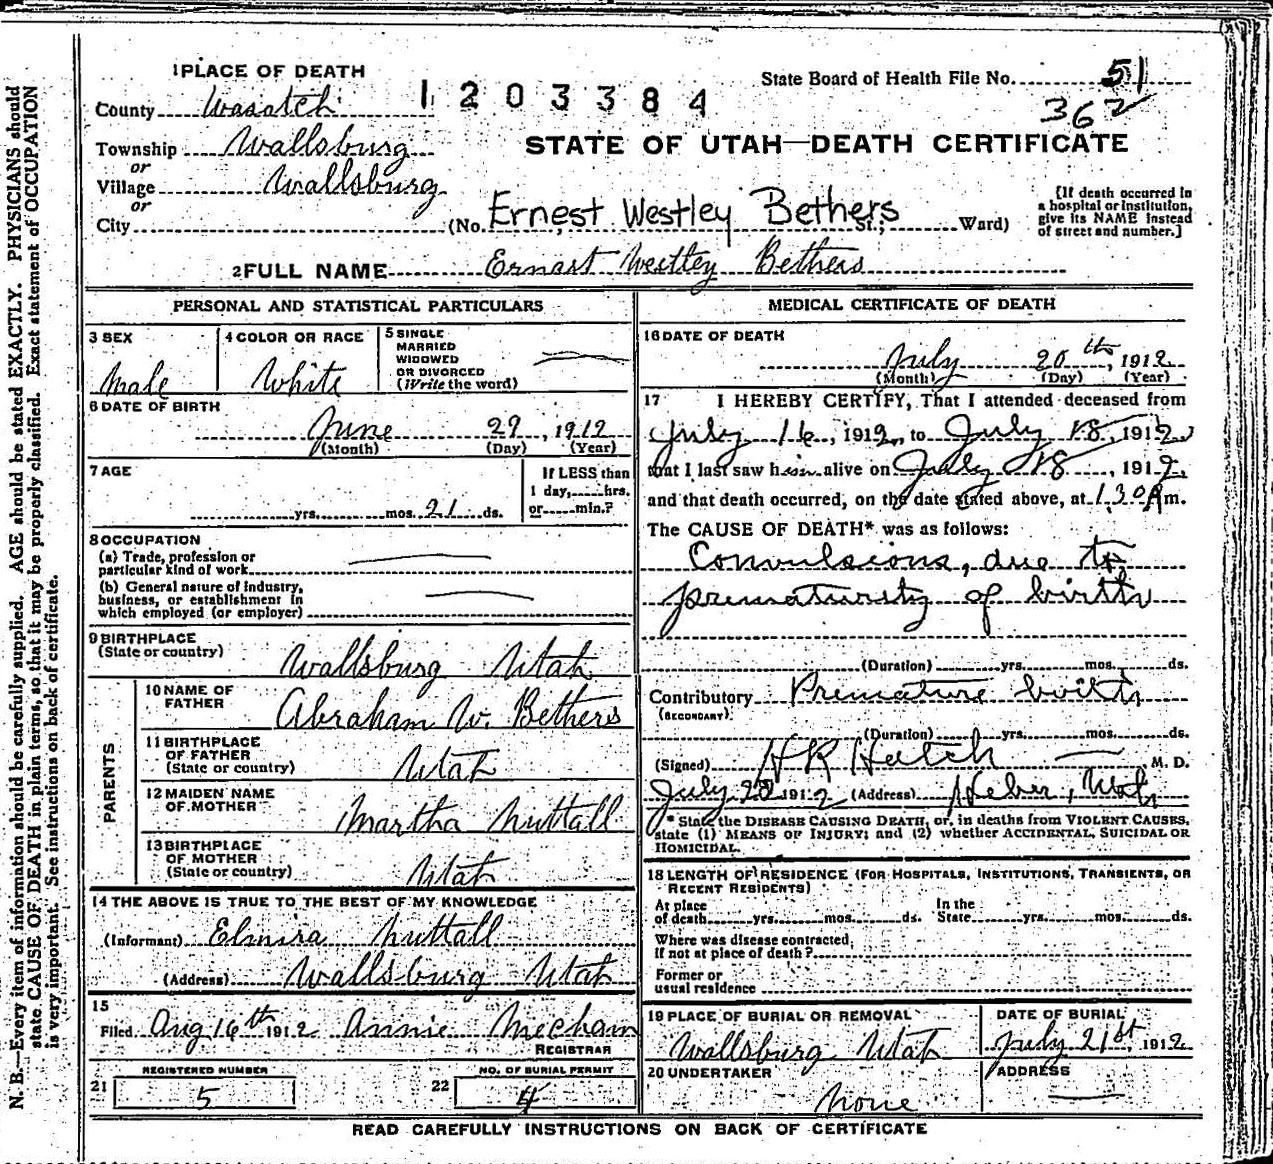 1 PLACE OF DEATH
State Board of Health File No. 51
County Wasatch 1203384
362
Township Wallsburg
STATE OF UTAH—DEATH CERTIFICATE
or
Village Wallsburg
or
City (No. Ernest Westley Bethers St.; Ward)
[If death occurred in
a hospital or institution,
give its NAME instead
of street and number.]
2 FULL NAME Ernast Westley Bethers
PERSONAL AND STATISTICAL PARTICULARS
3 SEX
Male
4 COLOR OR RACE
White
5 SINGLE
MARRIED
WIDOWED
OR DIVORCED
(Write the word)
6 DATE OF BIRTH
June 29, 1912
(Month) (Day) (Year)
7 AGE
yrs. mos. 21 ds.
If LESS than
1 day, hrs.
or min.?
8 OCCUPATION
(a) Trade, profession or
particular kind of work
(b) General nature of industry,
business, or establishment in
which employed (or employer)
9 BIRTHPLACE
(State or country)
Wallsburg Utah
PARENTS
10 NAME OF
FATHER
Abraham W. Bethers
11 BIRTHPLACE
OF FATHER
(State or country)
Utah
12 MAIDEN NAME
OF MOTHER
Martha Nuttall
13 BIRTHPLACE
OF MOTHER
(State or country)
Utah
14 THE ABOVE IS TRUE TO THE BEST OF MY KNOWLEDGE
(Informant) Elmira Nuttall
(Address) Wallsburg Utah
15
Filed Aug 16th 1912 Annie Mecham
REGISTRAR
21 REGISTERED NUMBER
5
22 NO. OF BURIAL PERMIT
4
MEDICAL CERTIFICATE OF DEATH
16 DATE OF DEATH
July 20th, 1912
(Month) (Day) (Year)
17 I HEREBY CERTIFY, That I attended deceased from
July 16, 1912, to July 18, 1912,
that I last saw him alive on July 18, 1912,
and that death occurred, on the date stated above, at 1.30 A m.
The CAUSE OF DEATH* was as follows:
Convulsions, due to
prematurity of birth
(Duration) yrs. mos. ds.
Contributory Premature birth
(SECONDARY)
(Duration) yrs. mos. ds.
(Signed) H R Hatch M. D.
July 20 1912 (Address) Heber, Utah
* State the DISEASE CAUSING DEATH, or, in deaths from VIOLENT CAUSES,
state (1) MEANS OF INJURY; and (2) whether ACCIDENTAL, SUICIDAL OR
HOMICIDAL.
18 LENGTH OF RESIDENCE (FOR HOSPITALS, INSTITUTIONS, TRANSIENTS, OR
RECENT RESIDENTS)
At place
of death yrs. mos. ds.
In the
State yrs. mos. ds.
Where was disease contracted,
if not at place of death?
Former or
usual residence
19 PLACE OF BURIAL OR REMOVAL
Wallsburg Utah
DATE OF BURIAL
July 21st, 1912
20 UNDERTAKER
none
ADDRESS
READ CAREFULLY INSTRUCTIONS ON BACK OF CERTIFICATE
N. B.—Every item of information should be carefully supplied. AGE should be stated EXACTLY. PHYSICIANS should
state CAUSE OF DEATH in plain terms, so that it may be properly classified. Exact statement of OCCUPATION
is very important. See instructions on back of certificate.